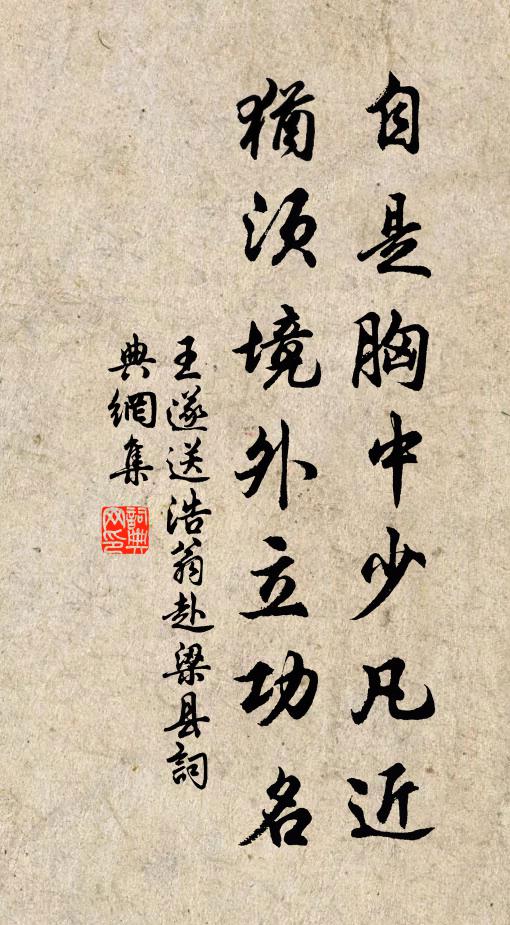 自是胸中少凡近
猶須境外立功名
王遂送浩翁赴梁县詞
典網集
詞典网印